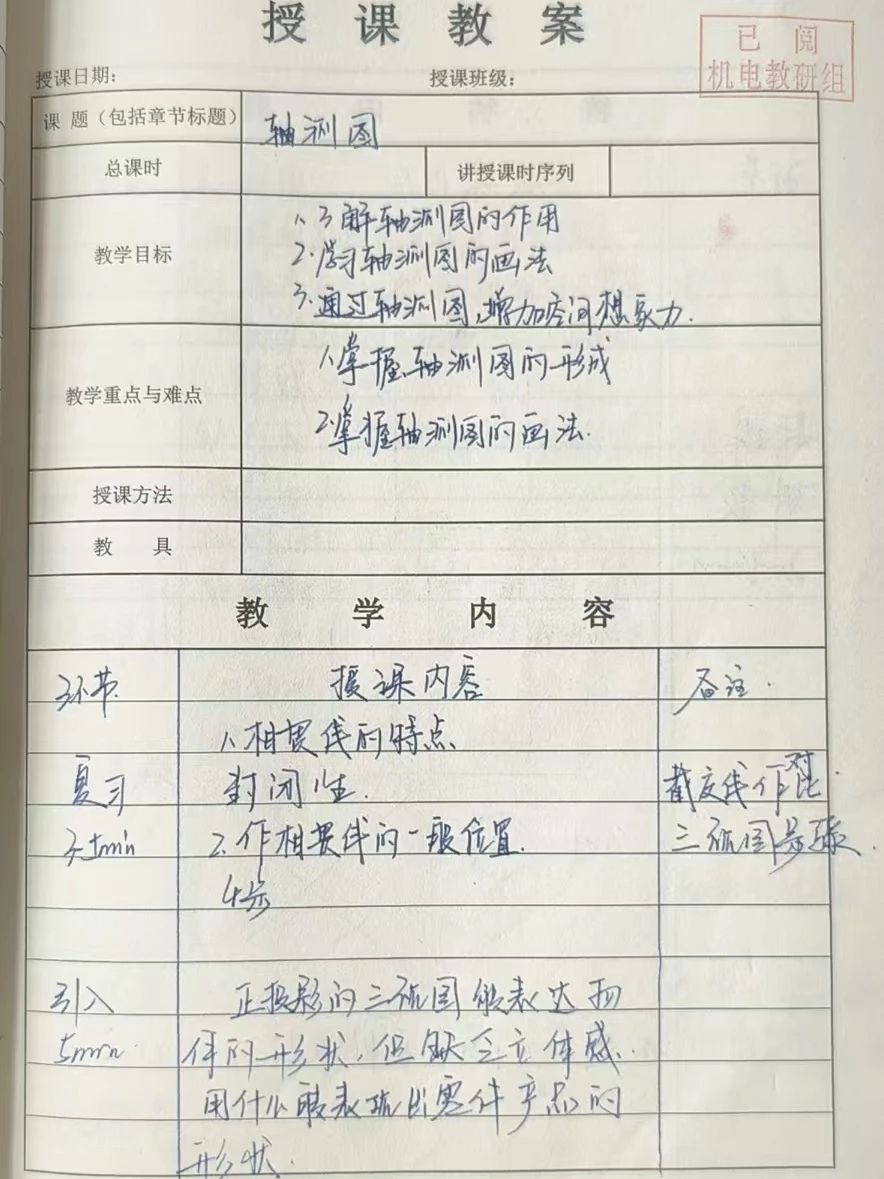 授 课 教 案
已 阅
机电教研组
授课日期： 授课班级：
课 题（包括章节标题） 轴测图
总课时 讲授课时序列
教学目标
1、了解轴测图的作用
2.学习轴测图的画法
3.通过轴测图,增加空间想象力.
教学重点与难点
1、掌握轴测图的形成
2.掌握轴测图的画法.
授课方法
教 具
教 学 内 容
环节. 授课内容 备注.
1、相贯线的特点、
复习 封闭性. 截交线作
5min 2.作相贯线的一般位置. 三视图步骤.
4步
引入 正投影的三视图能表达物
5min 体的形状,但缺乏立体感.
用什么 表 出零件产品的
形状.